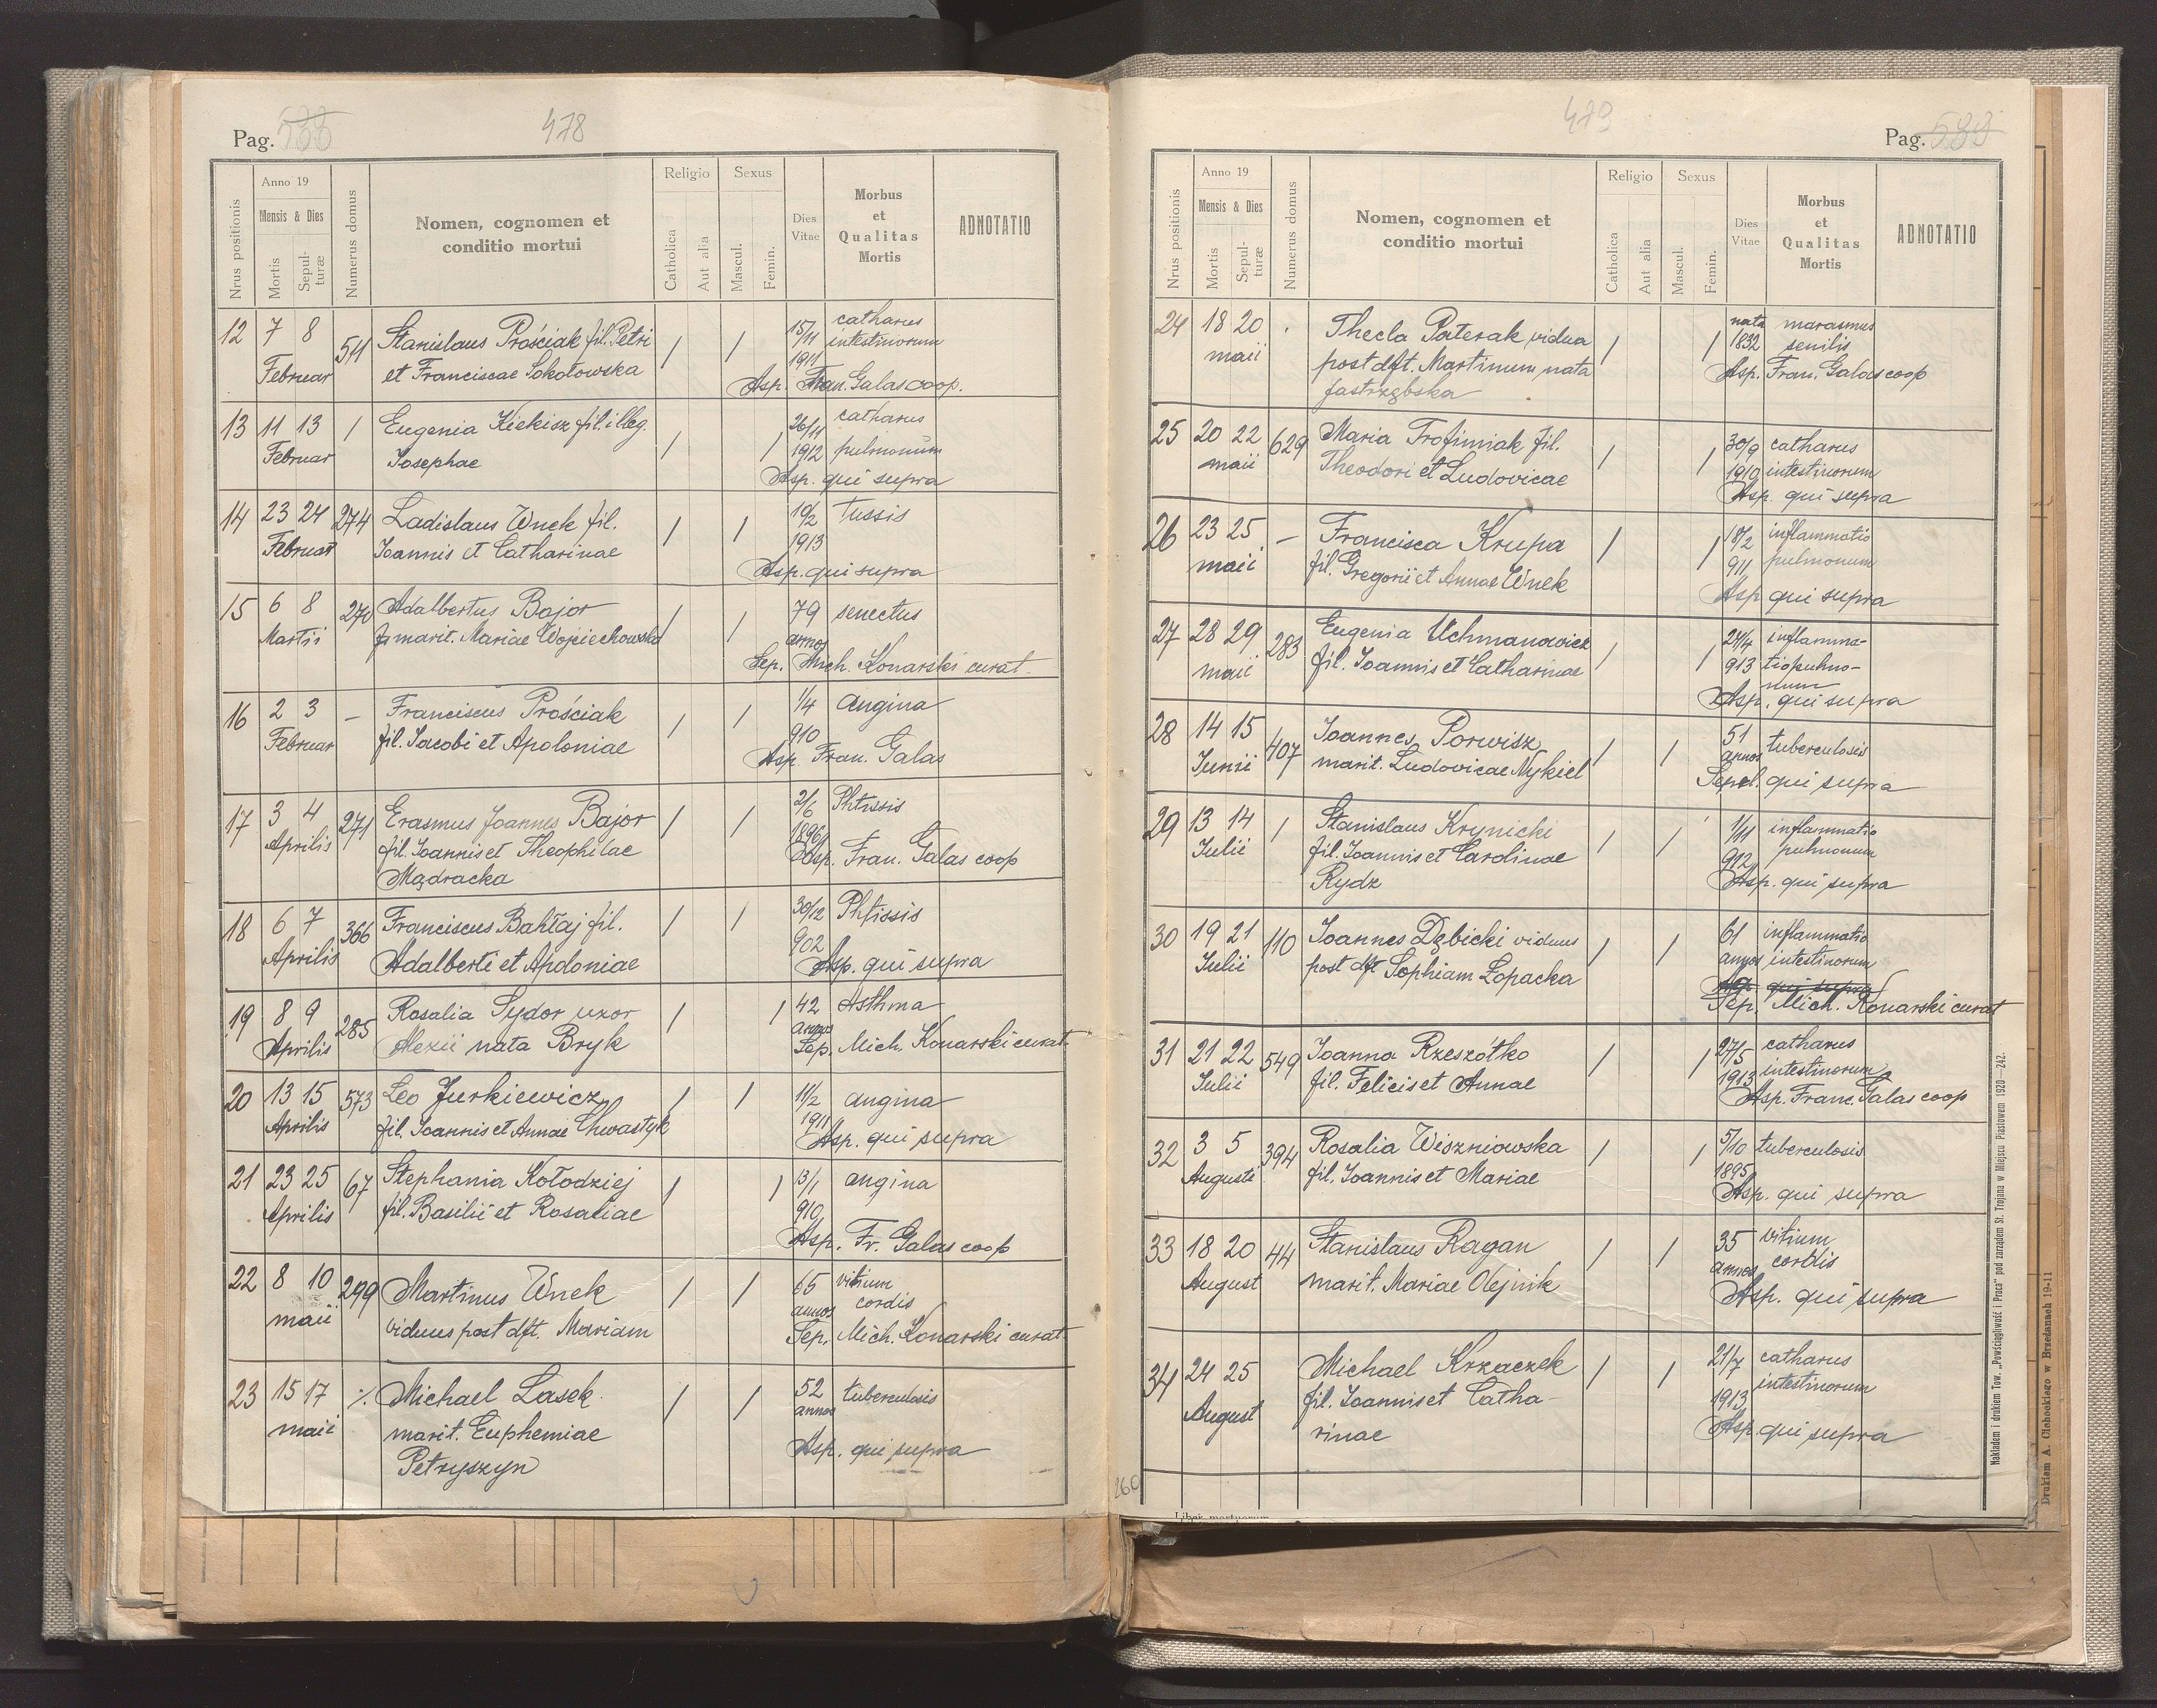 Pag. 588
478
Nrus positionis
Anno 19
Mensis & Dies
Mortis
Sepulturæ
Numerus domus
Nomen, cognomen et
conditio mortui
Religio
Catholica
Aut alia
Sexus
Mascul.
Femin.
Dies
Vitae
Morbus
et
Qualitas
Mortis
ADNOTATIO
12 7 8 Februar 511 Stanislaus Prościak fil. Petri
et Franciscae Sokołowska
/ / 15/11 1911 catharus
intestinorum
Asp. Fran. Galas coop.
13 11 13 Februar / Eugenia Kiekisz fil. illeg.
Iosephae
/ / 26/11 1912 catharus
pulmonum
Asp. qui supra
14 23 24 Februar 274 Ladislaus Wnek fil.
Ioannis et Catharinae
/ / 19/2 1913 Tussis
Asp. qui supra
15 6 8 Martii 270 Adalbertus Bajor
marit. Mariae Wojciechowska
/ / 79 annos senectus
Sep. Mich. Konarski curat.
16 2 3 Februar – Franciscus Prościak
fil. Iacobi et Apoloniae
/ / 1/4 910 angina
Asp. Fran. Galas
17 3 4 Aprilis 271 Erasmus Joannes Bajor
fil. Ioannis et Theophilae
Mądracka
/ / 2/6 1896 Phtissis
Asp. Fran. Galas coop
18 6 7 Aprilis 366 Franciscus Bahłaj fil.
Adalberti et Apoloniae
/ / 30/12 902 Phtissis
Asp. qui supra
19 8 9 Aprilis 285 Rosalia Sydor uxor
Alexii nata Bryk
/ / 42 annos Asthma
Sep. Mich. Konarski curat.
20 13 15 Aprilis 573 Leo Jurkiewicz
fil. Ioannis et Annae Chwastyk
/ / 11/2 1911 angina
Asp. qui supra
21 23 25 Aprilis 67 Stephania Kołodziej
fil. Basilii et Rosaliae
/ / 13/1 910 angina
Asp. Fr. Galas coop
22 8 10 maii 299 Martinus Wnek
viduus post dft. Mariam
/ / 65 annos vitium
cordis
Sep. Mich. Konarski curat.
23 15 17 maii ·/. Michael Lasek
marit. Euphemiae
Petryszyn
/ / 52 annos tuberculosis
Asp. qui supra
479
Pag. 589
Nrus positionis
Anno 19
Mensis & Dies
Mortis
Sepulturæ
Numerus domus
Nomen, cognomen et
conditio mortui
Religio
Catholica
Aut alia
Sexus
Mascul.
Femin.
Dies
Vitae
Morbus
et
Qualitas
Mortis
ADNOTATIO
24 18 20 maii . Thecla Paterak vidua
post dft. Martinum nata
Jastrzębska
/ / nata 1832 marasmus
senilis
Asp. Fran. Galas coop
25 20 22 maii 629 Maria Trofimiak fil.
Theodori et Ludovicae
/ / 30/9 1910 catharus
intestinorum
Asp. qui supra
26 23 25 maii – Francisca Krupa
fil. Gregorii et Annae Wnek
/ / 18/2 911 inflammatio
pulmonum
Asp. qui supra
27 28 29 maii 283 Eugenia Uchmanowicz
fil. Ioannis et Catharinae
/ / 24/4 913 inflamma-
tio pulmo-
num
Asp. qui supra
28 14 15 Iunii 407 Ioannes Porwisz
marit. Ludovicae Nykiel
/ / 51 annos tuberculosis
Sepel. qui supra
29 13 14 Iulii / Stanislaus Krynicki
fil. Ioannis et Carolinae
Rydz
/ / 1/11 912 inflammatio
pulmonum
Asp. qui supra
30 19 21 Iulii 110 Ioannes Dębicki viduus
post dft Sophiam Łopacka
/ / 61 annos inflammatio
intestinorum
Asp. qui supra
Sep. Mich. Konarski curat
31 21 22 Iulii 549 Ioanna Rzeszótko
fil. Felicis et Annae
/ / 27/5 1913 catharus
intestinorum
Asp. Franc. Galas coop
32 3 5 Augusti 394 Rosalia Wiszniowska
fil. Ioannis et Mariae
/ / 5/10 1895 tuberculosis
Asp. qui supra
33 18 20 August 44 Stanislaus Ragan
marit. Mariae Olejnik
/ / 35 annos vitium
cordis
Asp. qui supra
34 24 25 August Michael Krzaczek
fil. Ioannis et Catha-
rinae
/ / 21/7 1913 catharus
intestinorum
Asp. qui supra
260
Liber mortuorum
Nakładem i drukiem Tow. „Powściągliwość i Praca" pod zarządem St. Trojana w Miejscu Piastowem 1920—242.
Drukiem A. Cichockiego w Brzeżanach 19-11